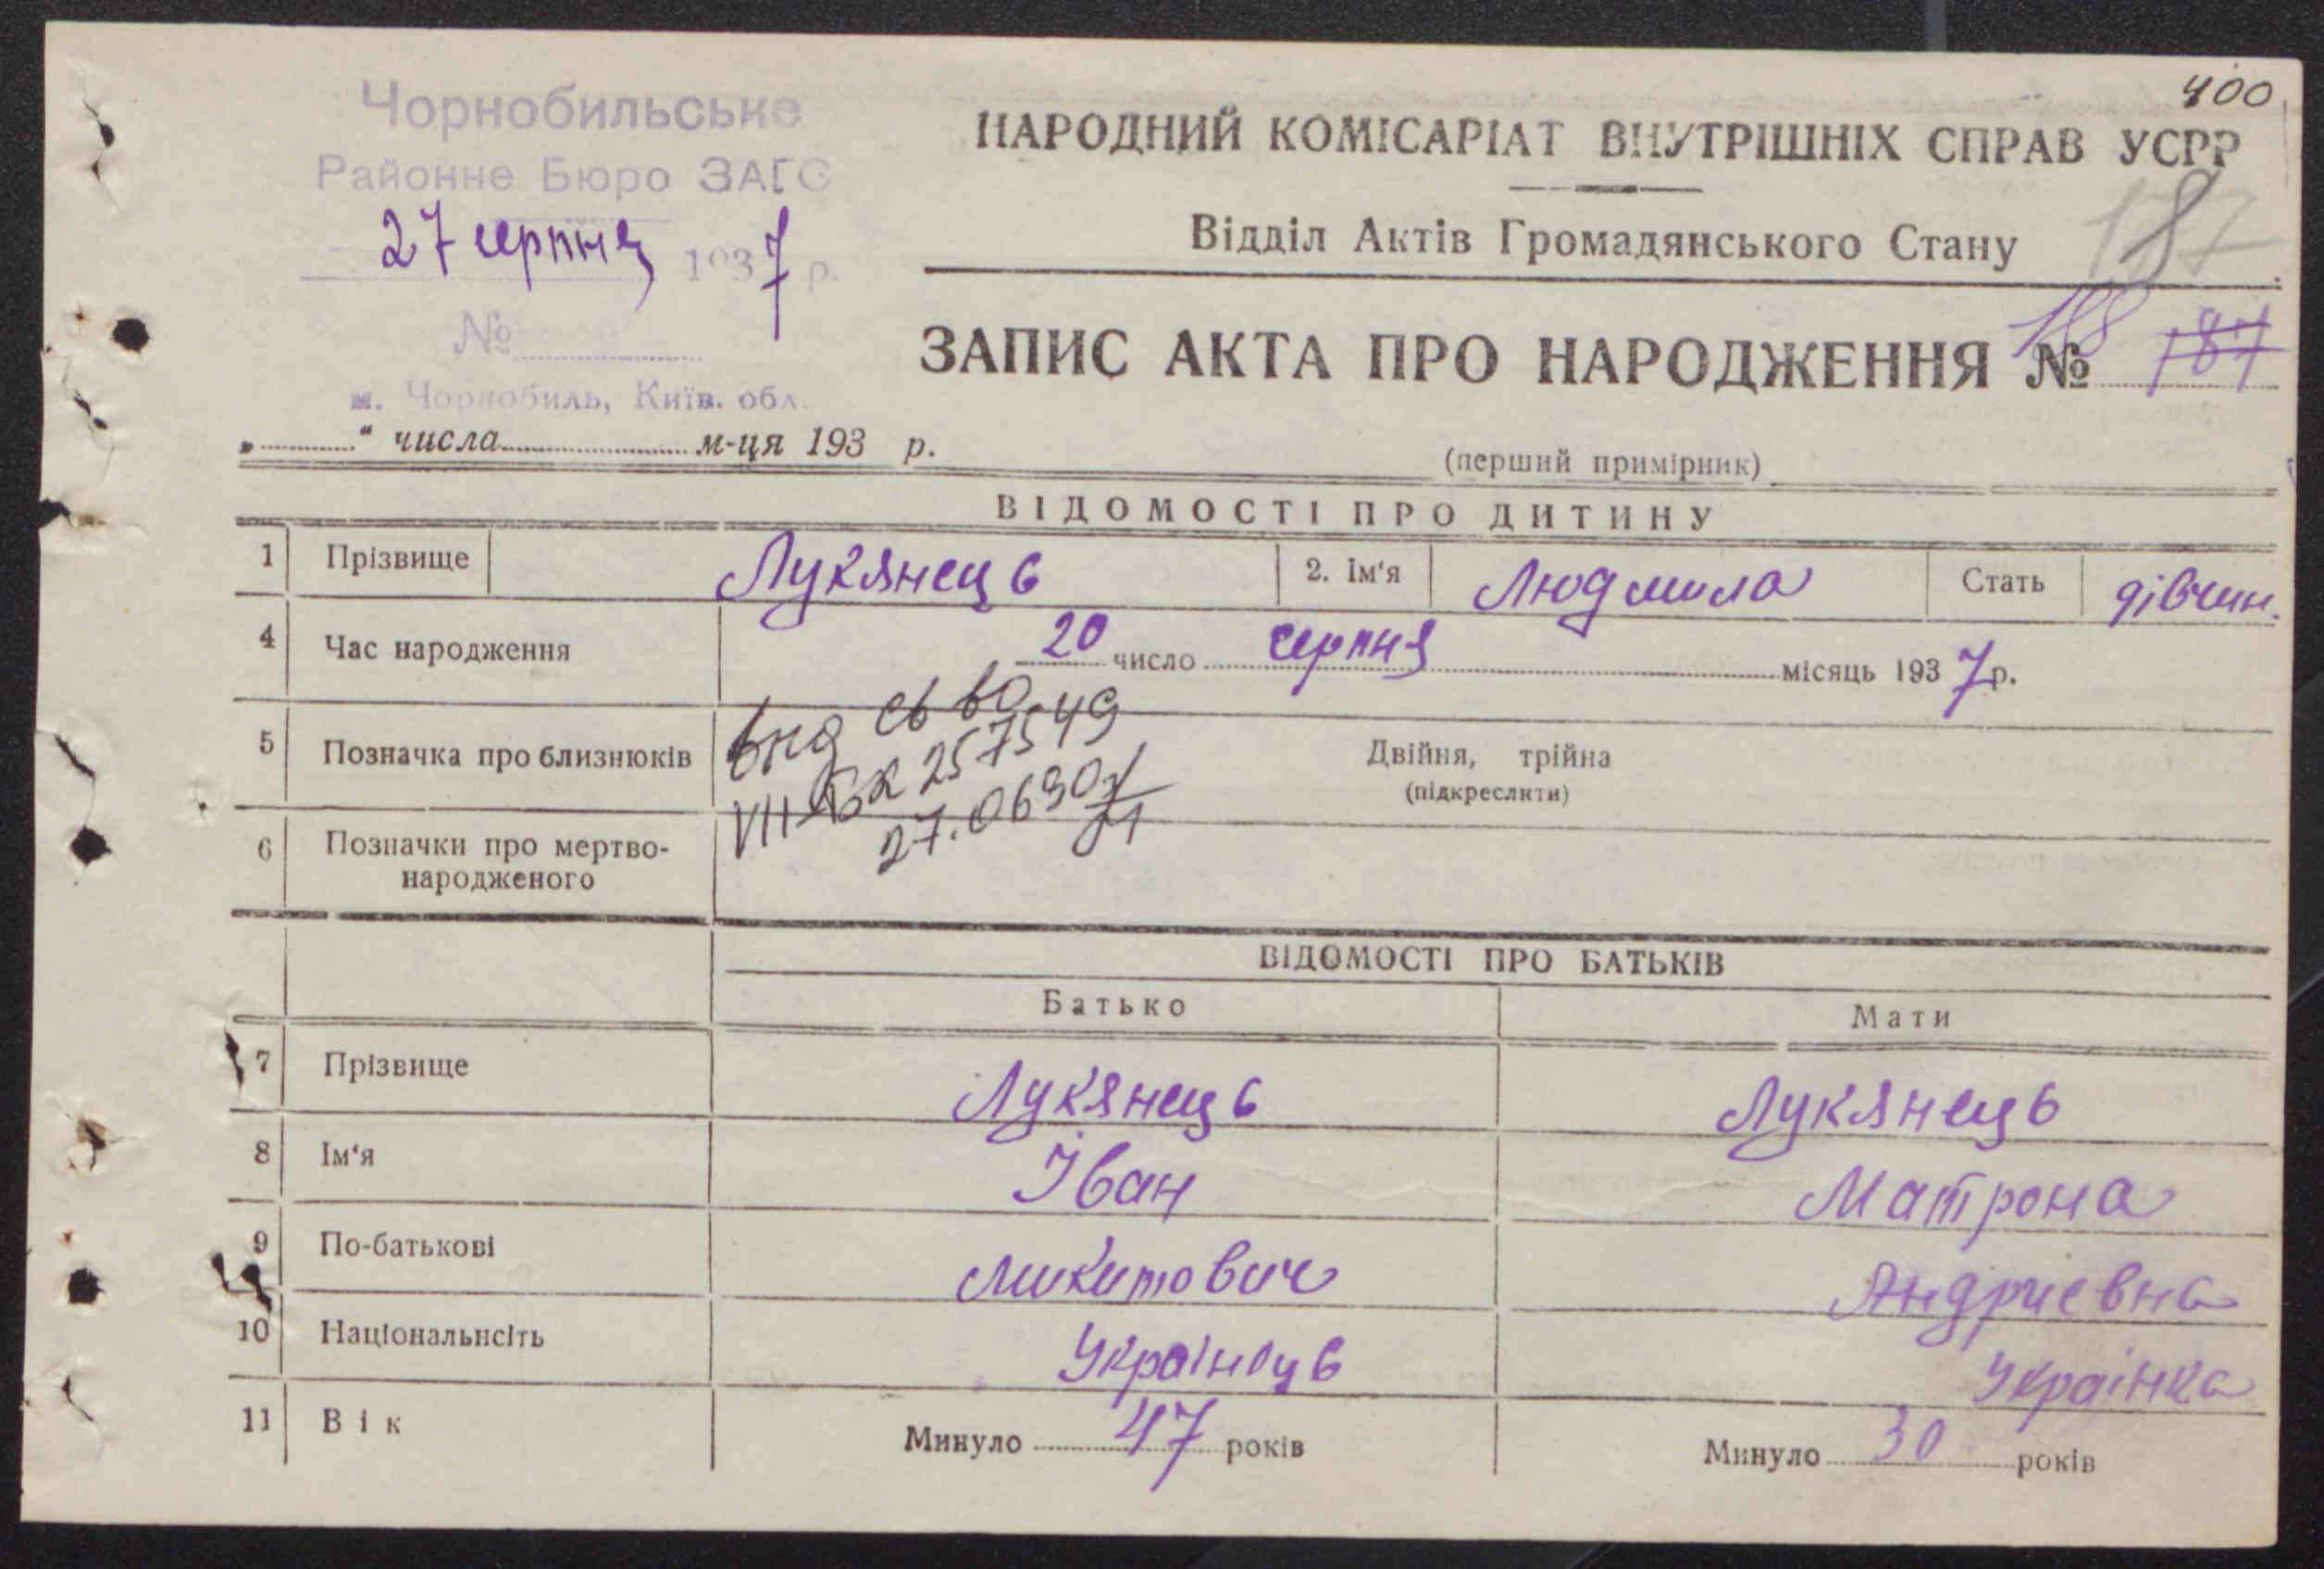 400
Чорнобильське
Районне Бюро ЗАГС
27 серпня 1937 р.
№
м. Чорнобиль, Київ. обл.
„ “ числа м-ця 193 р.
НАРОДНИЙ КОМІСАРІАТ ВНУТРІШНІХ СПРАВ УСРР
Відділ Актів Громадянського Стану
ЗАПИС АКТА ПРО НАРОДЖЕННЯ № 188 187
(перший примірник)
ВІДОМОСТІ ПРО ДИТИНУ
1 Прізвище Лукянець 2. Ім‘я Людмила Стать дівчин.
4 Час народження 20 число серпня місяць 1937 р.
5 Позначка про близнюків Двійня, трійна
(підкреслити)
VII БК 257549
6 Позначки про мертво-
народженого
ВІДОМОСТІ ПРО БАТЬКІВ
Батько Мати
7 Прізвище Лукянець Лукянець
8 Ім‘я Іван Матрона
9 По-батькові Микитович Андриевна
10 Національнсіть Украінець Украінка
11 Вік Минуло 47 років Минуло 30 років